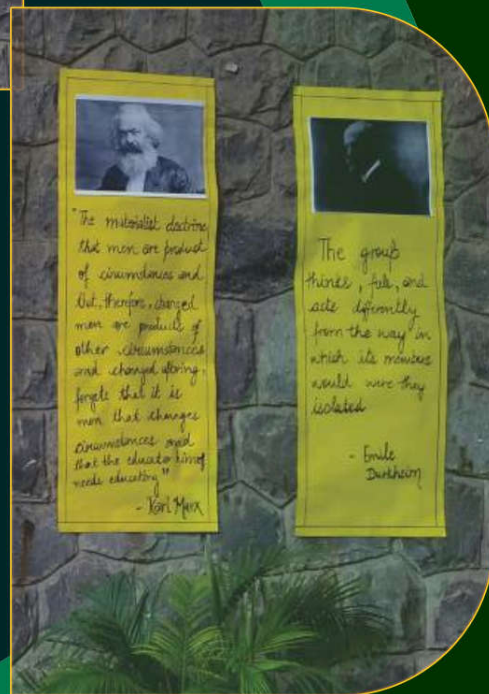 "The materialist doctrine
that men are product
of circumstances and
that, therefore, changed
men are products of
other circumstances
and changed
forgets that it is
men that changes
circumstances and
that the educator himself
needs educating"
- Karl Marx
The group
thinks, feels, and
acts differently
from the way in
which its members
would were they
isolated
- Emile
Durkheim